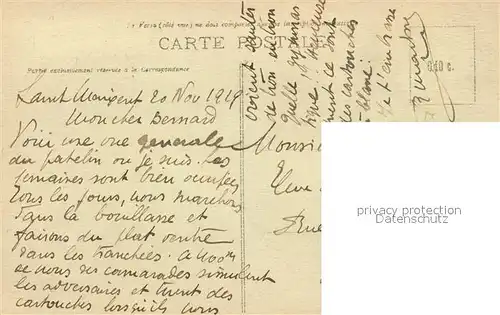 Le Verso (côté vue) ne doit comporter
CARTE POSTALE
Partie exclusivement réservée à la Correspondance
Saint Maixent 20 Nov 1919
Mon cher Bernard
Voici une vue generale
du patelin où je suis. Les
semaines sont bien occupées
Tous les jours, nous marchons
dans la bouillasse et
faisons du plat ventre
dans les tranchées. A 400m
de nous des camarades simulent
les adversaires et tirent des
cartouches lorsqu'ils nous
voient sauter
de trou en trou
Quelle gymnas
tique! Heureuse
ment ce sont
des cartouches
à blanc.
Je t'embrasse
Monsieur
Eleve
Rue
privacy protection
www.oldthing.de